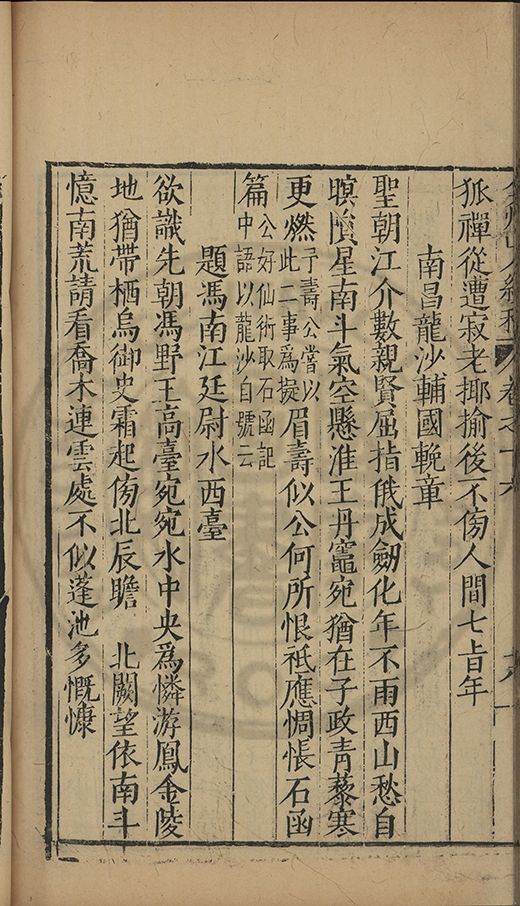 卷之十六
狐禪從遭寂老揶揄後不傍人間七百年
南昌龍沙輔國輓章
聖朝江介數親賢屈指俄成劒化年不雨西山愁自
暝隕星南斗氣空懸淮王丹竈宛猶在子政青藜寒
更燃予壽公嘗以此二事爲擬眉壽似公何所恨祗應惆悵石函
篇公好仙術取石函記中語以龍沙自號云
題馮南江廷尉水西臺
欲識先朝馮野王高臺宛宛水中央爲憐游鳳金陵
地猶帶栖烏御史霜起傍北辰瞻 北闕望依南斗
憶南荒請看喬木連雲處不似蓬池多慨慷